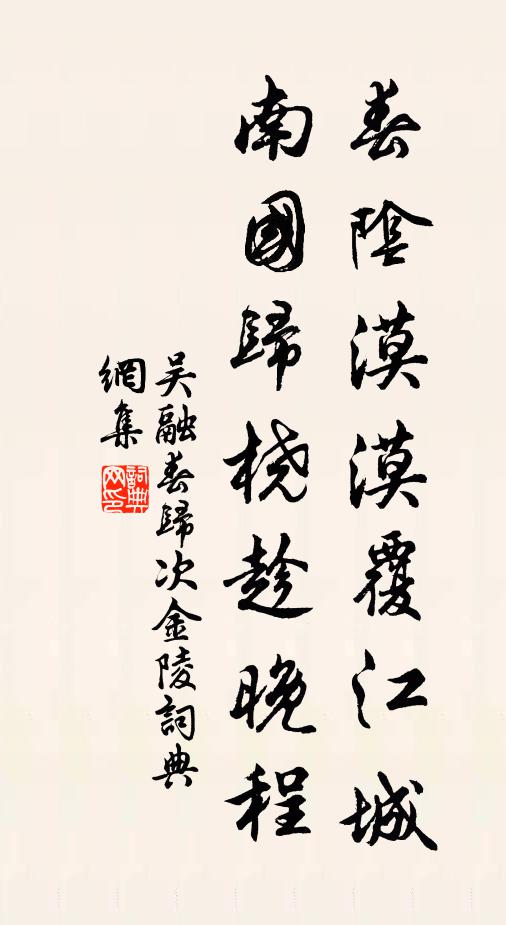 春陰漠漠覆江城
南國歸橈趁晚程
吳融春歸次金陵詞典
網集
詞典
网印